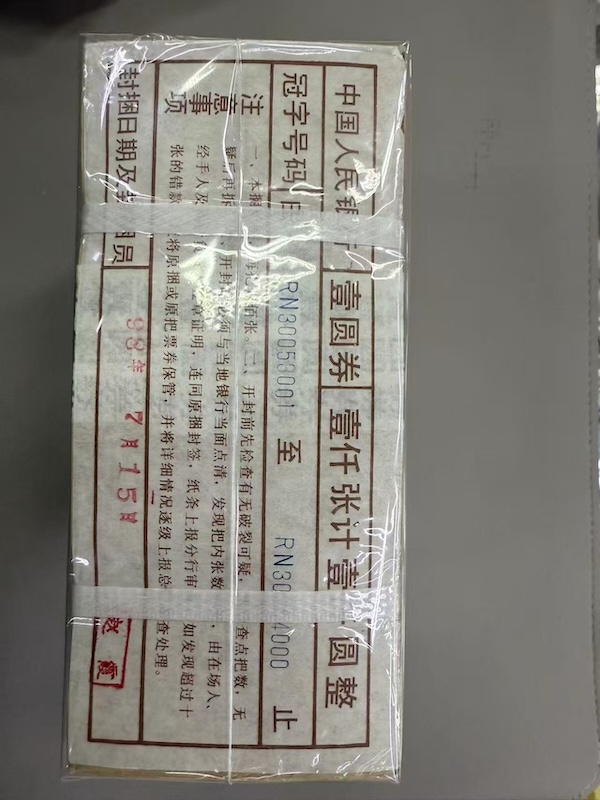 中国人民银 壹圆券 壹仟张计壹 圆整
冠字号码 RN30053001 至 RN30 4000 止
注意事项
一、本捆 每把 佰张。二、开封前先检查有无破裂可疑, 查点把数,无
疑后再拆 、开封时必须与当地银行当面点清,发现把内张数 、由在场人、
经手人及 章证明,连同原捆封签,纸条上报分行审 如发现超过十
张的错款 将原捆或原把票券保管,并将详细情况逐级上报总 查处理。
封捆日期及 员 99年 7月15日 霞